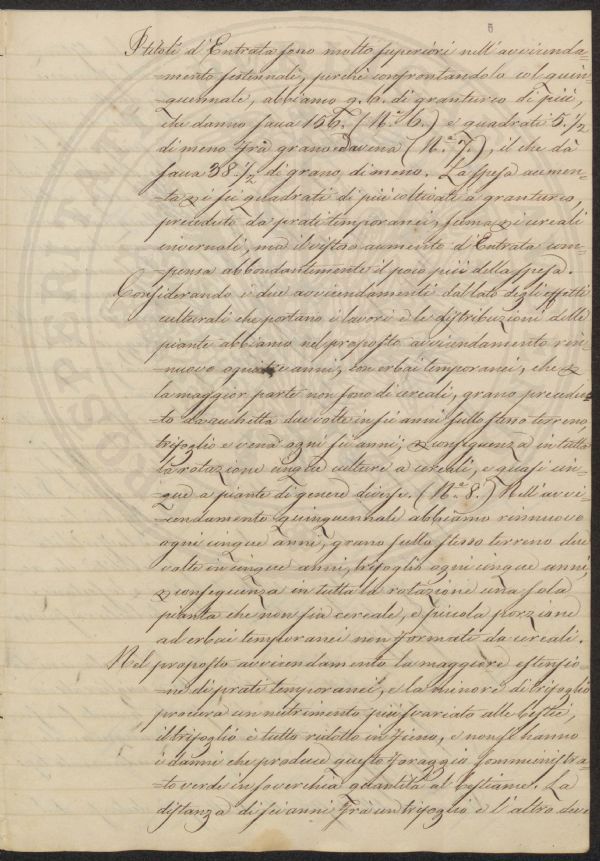 I titoli d'Entrata sono molto superiori nell'avvicenda=
=mento sessennale, perchè confrontandolo col quin=
=quennale, abbiamo q. 6. di granturco di più,
che danno saca 156. (N.º 6.) e quadrati 5. 1/2
di meno fra grano ed avena (N.º 7.), il che dà
saca 38. 1/2 di grano, di meno. La spesa aumen=
ta di sei quadrati di più coltivati a granturco,
preceduto da prati temporanei, sienno di cereali
invernali, ma il vistoso aumento d'Entrata com=
=pensa abbondantemente il poco più della spesa.
Considerando i due avvicendamenti dal lato degli effetti
culturali che portano i lavori e le distribuzioni delle
piante abbiamo nel proposto avvicendamento rin=
=nuovo ogni tre anni, con erbai temporanei, che
la maggior parte non sono di cereali, grano precedu=
to da vechetta due volte in sei anni sullo stesso terreno,
trifoglio e vena ogni sei anni, conseguenza in tutta
la rotazione cinque culture a cereali, e quasi cin=
=que a piante di genere diverse. (N.º 8.) Nell'avvi=
=cendamento quinquennale abbiamo rinnuovo
ogni cinque anni, grano sullo stesso terreno due
volte in cinque anni, trifoglio ogni cinque anni,
conseguenza in tutta la rotazione una sola
pianta che non sia cereale, e piccola porzione
ad erbai temporanei non formati da cereali.
Nel proposto avvicendamento la maggiore estensio=
=ne di prati temporanei, e la minore di trifoglio
procura un nutrimento più svariato alle bestie,
il trifoglio è tutto ridotto in fieno, e non si hanno
i danni che produce questo foraggio somministra=
to verde in soverchia quantità al bestiame. La
distanza di sei anni fra un trifoglio e l'altro deve